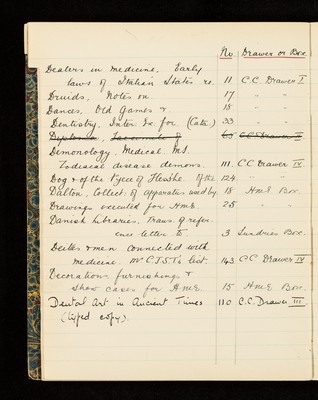 No. Drawer or Box.
Dealers in medicine, Early
laws of Italian States re. 11 C.C. Drawer I
Druids, Notes on 17 " "
Dances, Old Games & 18 " "
Dentistry, Inter Ex. for (Cata:) 33 " "
C.C. Drawer
Demonology, Medical. MS.
Zodiacal disease demons. 111. C.C. Drawer IV
Dog & the Eyece of Fleashe. Of the 124. " "
Dalton, Collect. of apparatus used by 18 H.M.E. Box.
Drawings executed for H.M.E. 25 " "
Danish Libraries. Trans. of refer-
ence letter to 3 Sundries Box.
Deities & men connected with
medicine. Mr C.J.S.T's list. 143 C.C. Drawer IV
Decorations furnishings &
show cases for H.M.E. 15 H.M.E. Box.
Dental Art in Ancient Times 110 C.C. Drawer III
(typed copy).